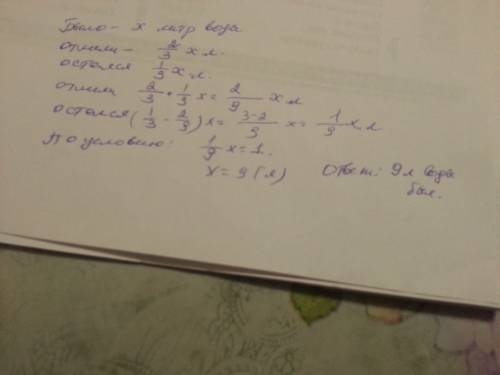 Было - х литр вода
отлили - 2/3 х л.
остался 1/3 х л.
отлили 2/3 · 1/3 х = 2/9 х л
остался (1/3 - 2/9) х = 3-2/9 х = 1/9 х л
По условию: 1/9 х = 1.
х = 9 (л) Ответ: 9 л вода
был.